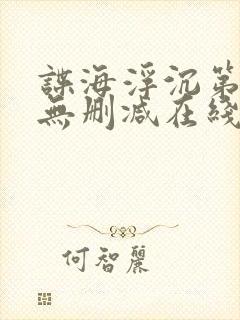 諜海浮沉第
無删减在綫
何智麗